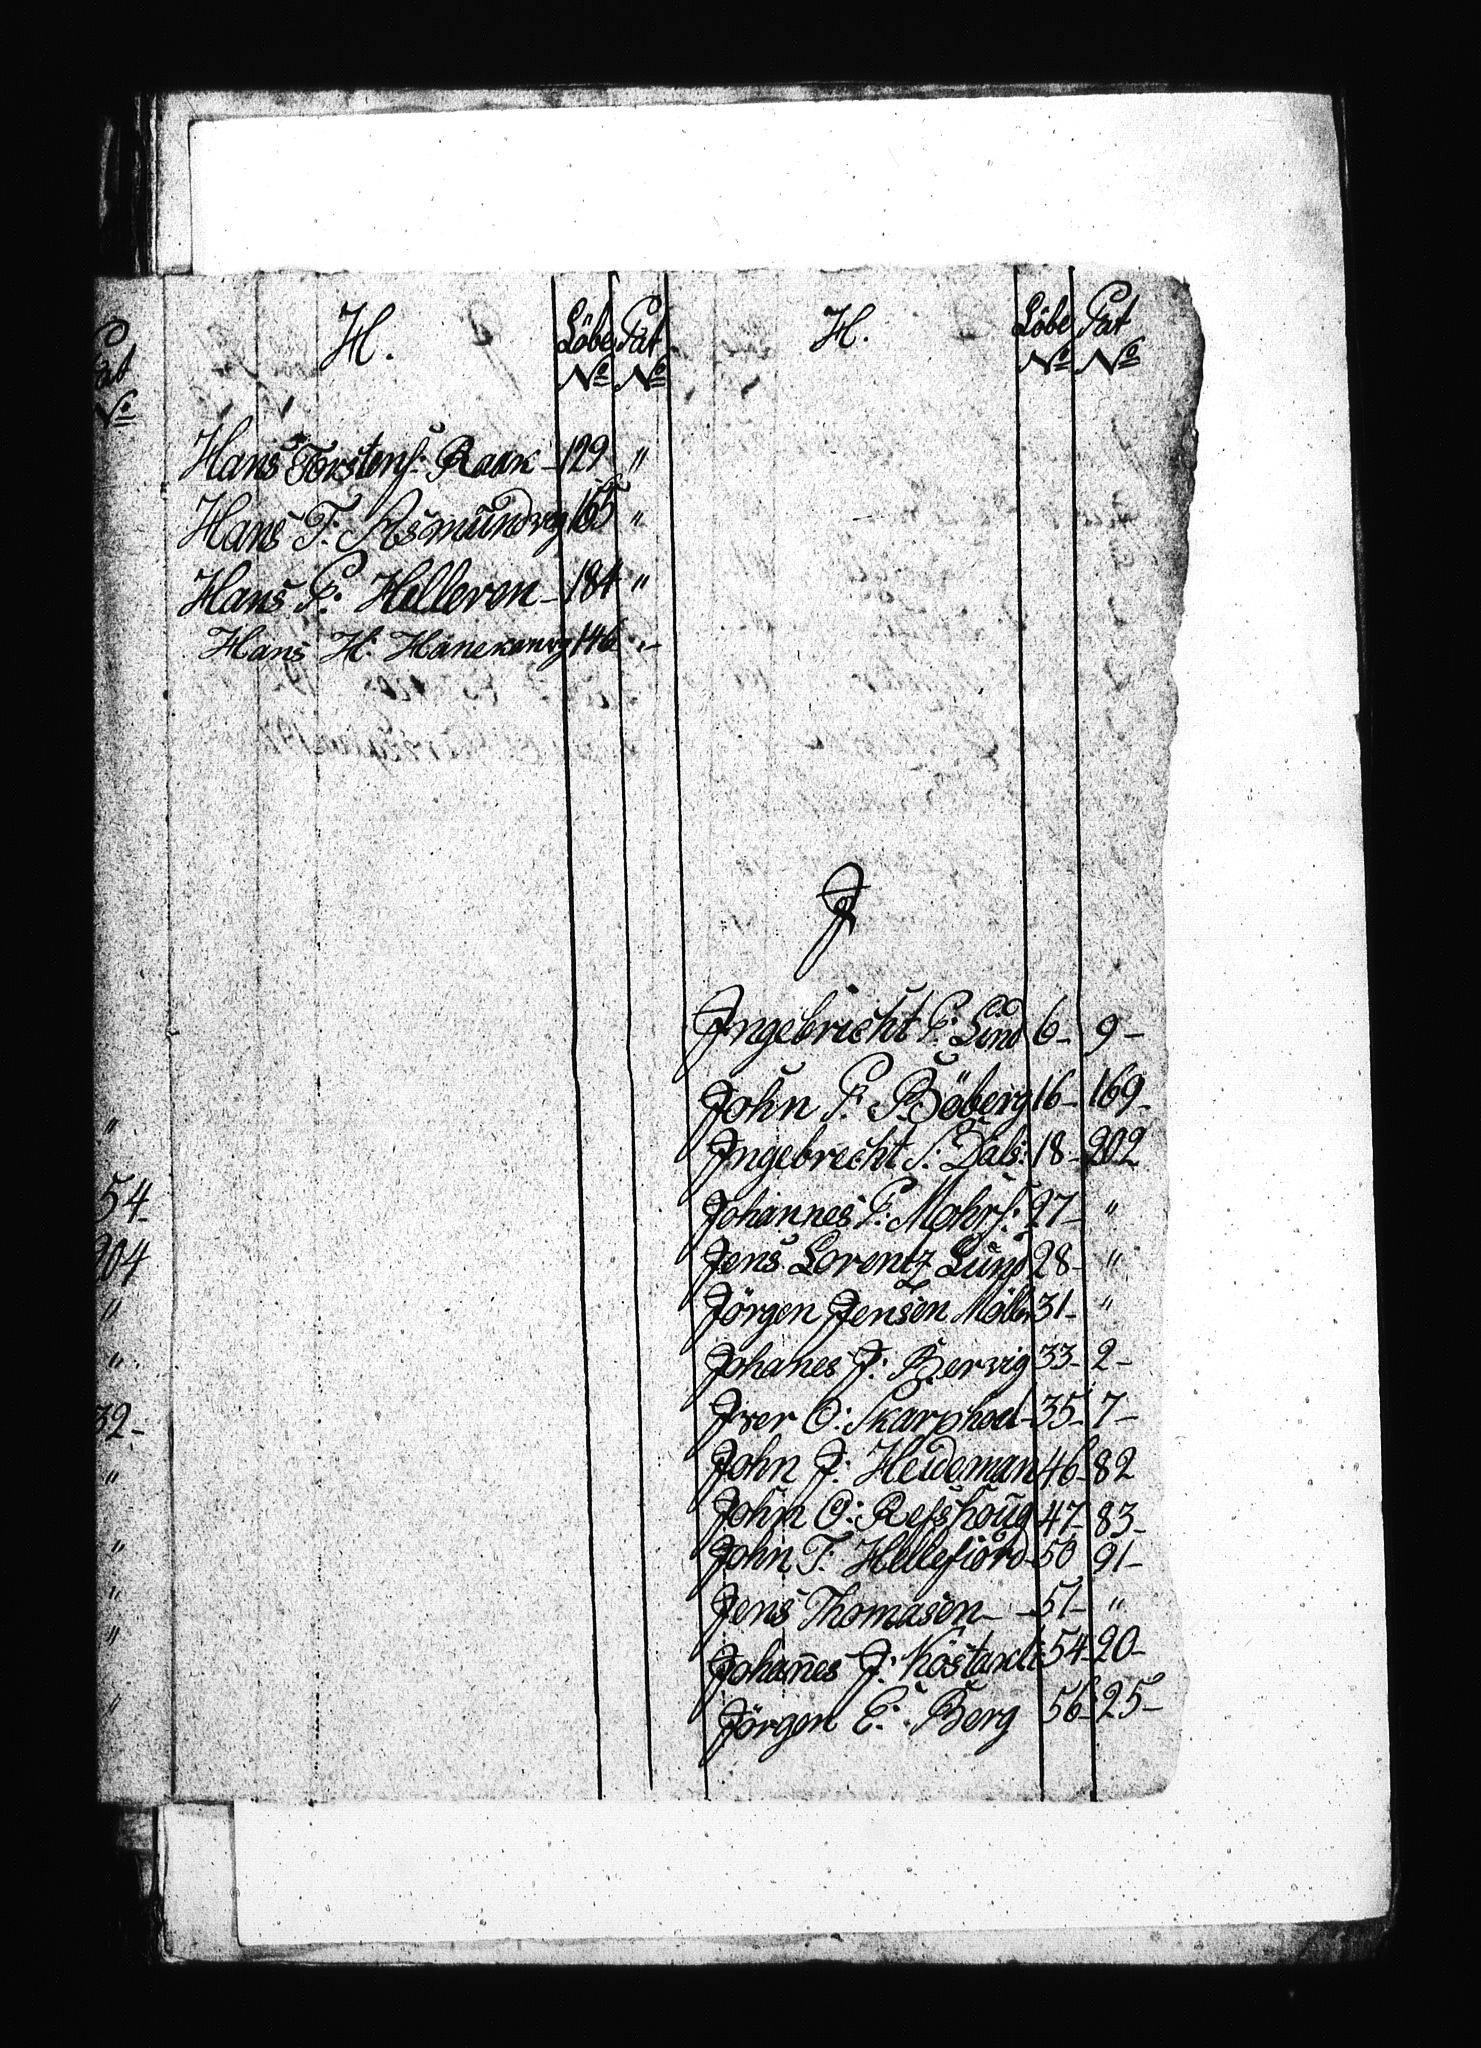 Pat
No
"
54-
204
"
"
32-
"
"
"
"
"
H. Löbe Pat
No No
Hans Torstens: Raak - 129 "
Hans T: Asmundvog 165 "
Hans P: Helleren - 184 "
Hans H: 146 "
H. Löbe Pat
No No
J
Ingebricht P: Lund 6- 9-
John P: Böberg 16- 169-
Ingebrecht S: Dals: 18- 202
Johannes P: Mohrs: 27- "
Jens Lorentz Lund 28- "
Jörgen Jensen Möller 31- "
Johanes J: Bervig 33- 2-
Iver O: Skarphoel- 35- 7-
John J: Heideman 46- 82
John O: Refshoug 47- 83-
John T: Hellefiord- 50 91-
Jens Thomasen - 51- "
Johañes J: 54- 20-
Jörgen E: Berg 56- 25-